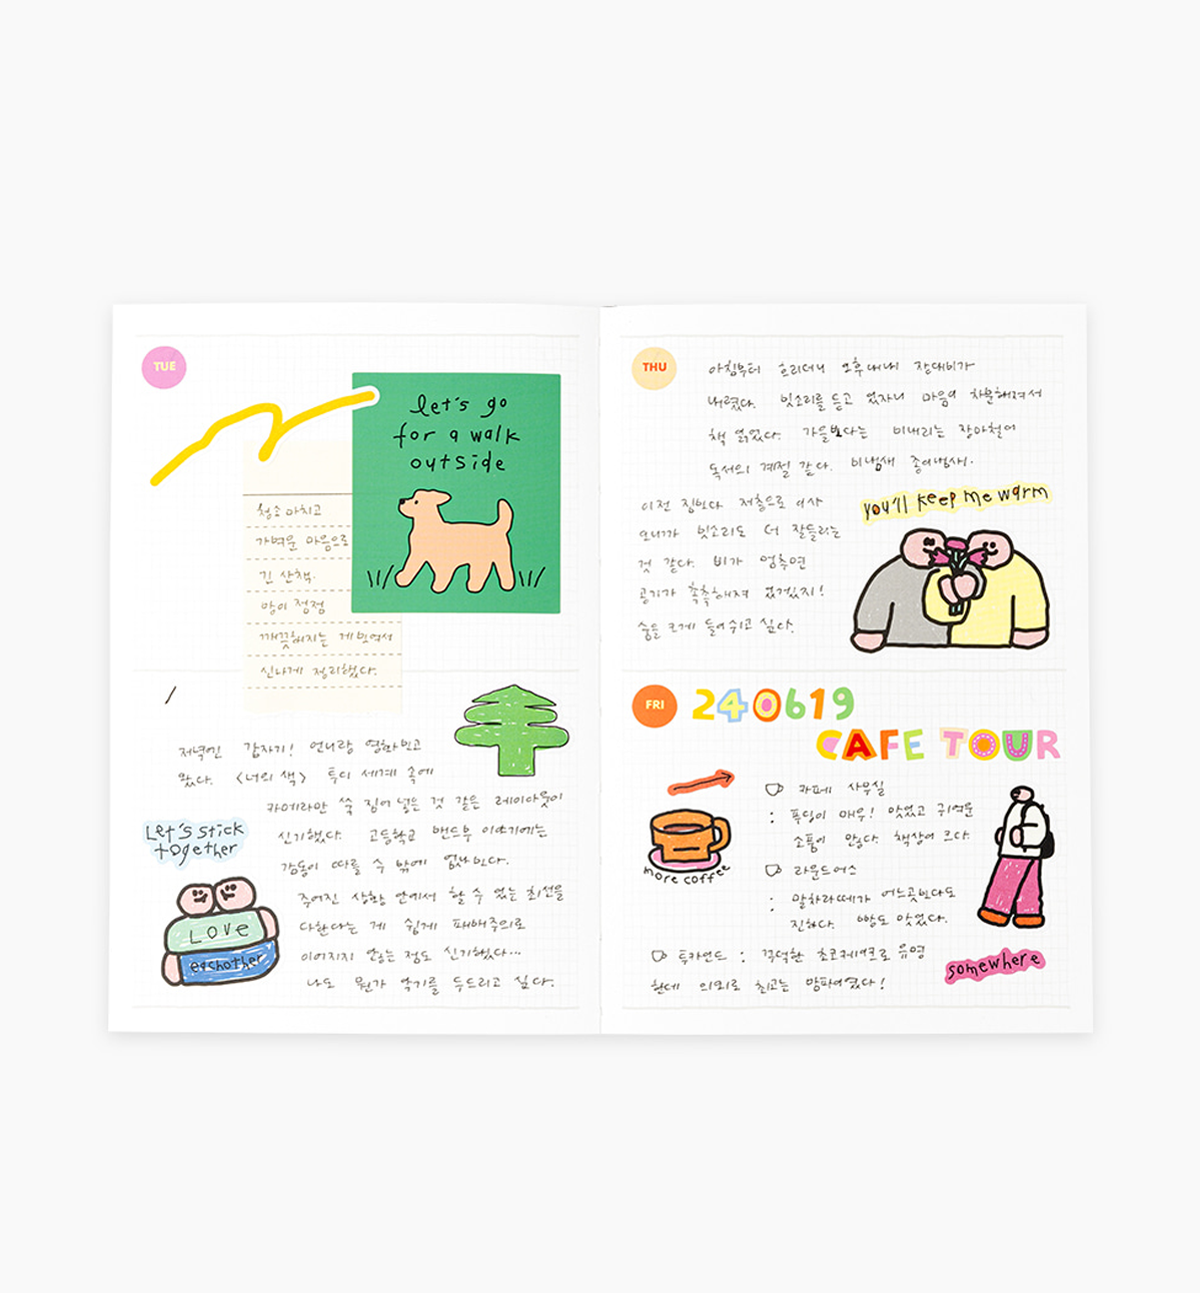 TUE
let's go
for a walk
outside
청소 마치고
가벼운 마음으로
긴 산책.
많이 정점
깨끗해지는 게 보여서
신나게 정리했다.
저녁엔 갑자기! 언니랑 영화 보고
왔다. <너의 색> 투디 세계 속에
카메라만 쏙 집어 넣은 것 같은 레이아웃이
신기했다. 고등학교 밴드부 이야기에는
감동이 따를 수 밖에 없나보다.
주어진 상황 안에서 할 수 있는 최선을
다한다는 게 쉽게 패배주의로
이어지지 않는 점도 신기했다...
나도 뭔가 악기를 두드리고 싶다.
Let's stick
together
LOVE
eachother
THU
아침부터 흐리더니 오후 내내 장대비가
내렸다. 빗소리를 듣고 있자니 마음이 차분해져서
책 읽었다. 가을보다는 비내리는 장마철이
독서의 계절 같다. 비냄새 종이냄새.
이전 집보다 저층으로 이사
오니까 빗소리도 더 잘들리는
것 같다. 비가 멈추면
공기가 촉촉해져 있겠지!
숨을 크게 들이쉬고 싶다.
you'll keep me warm
FRI
240619
CAFE TOUR
카페 사무실
: 푸딩이 매우! 맛있고 귀여운
소품이 많다. 책상이 크다.
라운드어스
: 말차라떼가 어느곳보다도
진하다. 빵도 맛있다.
투카인드 : 꾸덕한 초코케이크로 유명
한데 의외로 최고는 말파이였다!
more coffee
somewhere